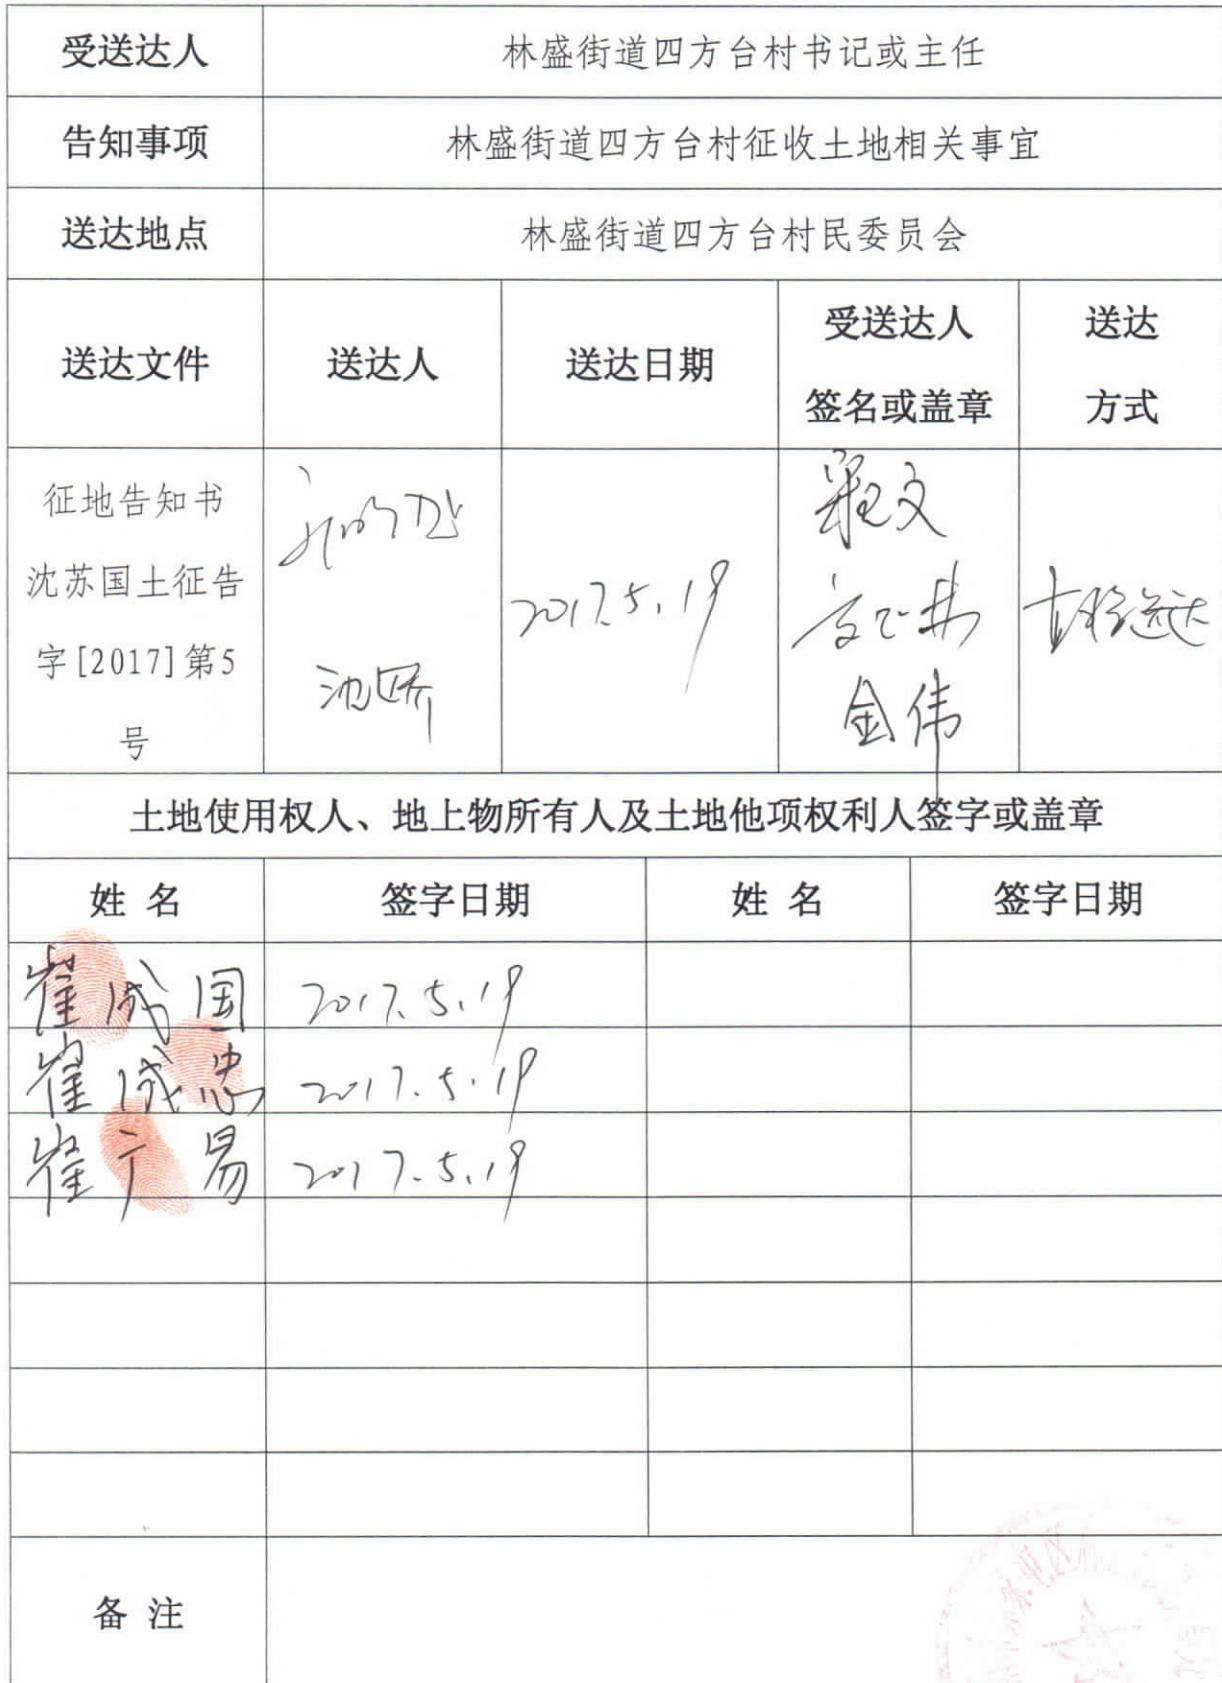 受送达人 林盛街道四方台村书记或主任
告知事项 林盛街道四方台村征收土地相关事宜
送达地点 林盛街道四方台村民委员会
送达文件 送达人 送达日期 受送达人签名或盖章 送达方式
征地告知书
沈苏国土征告
字[2017]第5
号
2017.5.19
金伟
送达
土地使用权人、地上物所有人及土地他项权利人签字或盖章
姓 名 签字日期 姓 名 签字日期
崔成国 2017.5.19
崔成忠 2017.5.19
崔广易 2017.5.19
备 注